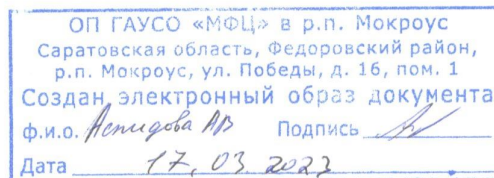 ОП ГАУСО «МФЦ» в р.п. Мокроус
Саратовская область, Федоровский район,
р.п. Мокроус, ул. Победы, д. 16, пом. 1
Создан электронный образ документа
ф.и.о. АВ Подпись
Дата 17.03.2023